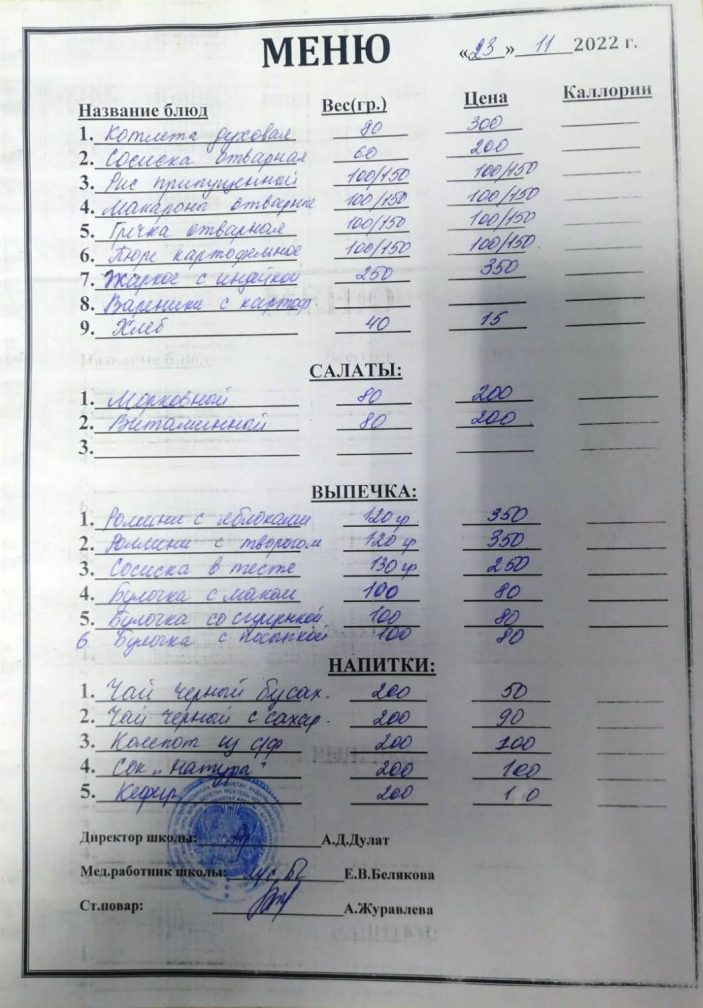 МЕНЮ «23» 11 2022 г.
Название блюд Вес(гр.) Цена Каллории
1. Котлета духовая 80 300
2. Сосиска отварная 60 200
3. Рис припущенной 100/150 100/150
4. Макароны отварные 100/150 100/150
5. Гречка отварная 100/150 100/150
6. Пюре картофельное 100/150 100/150
7. Жаркое с индейкой 250 350
8. Вареники с картоф
9. Хлеб 40 15
САЛАТЫ:
1. Морковной 80 200
2. Витаминной 80 200
3.
ВЫПЕЧКА:
1. с яблоками 120 гр 350
2. с творогом 120 гр 350
3. Сосиска в тесте 130 гр 250
4. Булочка с маком 100 80
5. Булочка со сгущенкой 100 80
6. Булочка с посыпкой 100 80
НАПИТКИ:
1. Чай черный бусах. 200 50
2. Чай черный с сахар. 200 90
3. Компот из с/ф 200 100
4. Сок „Натура" 200 100
5. Кефир 200
Директор школы: А.Д.Дулат
Мед.работник школы: Е.В.Белякова
Ст.повар: А.Журавлева